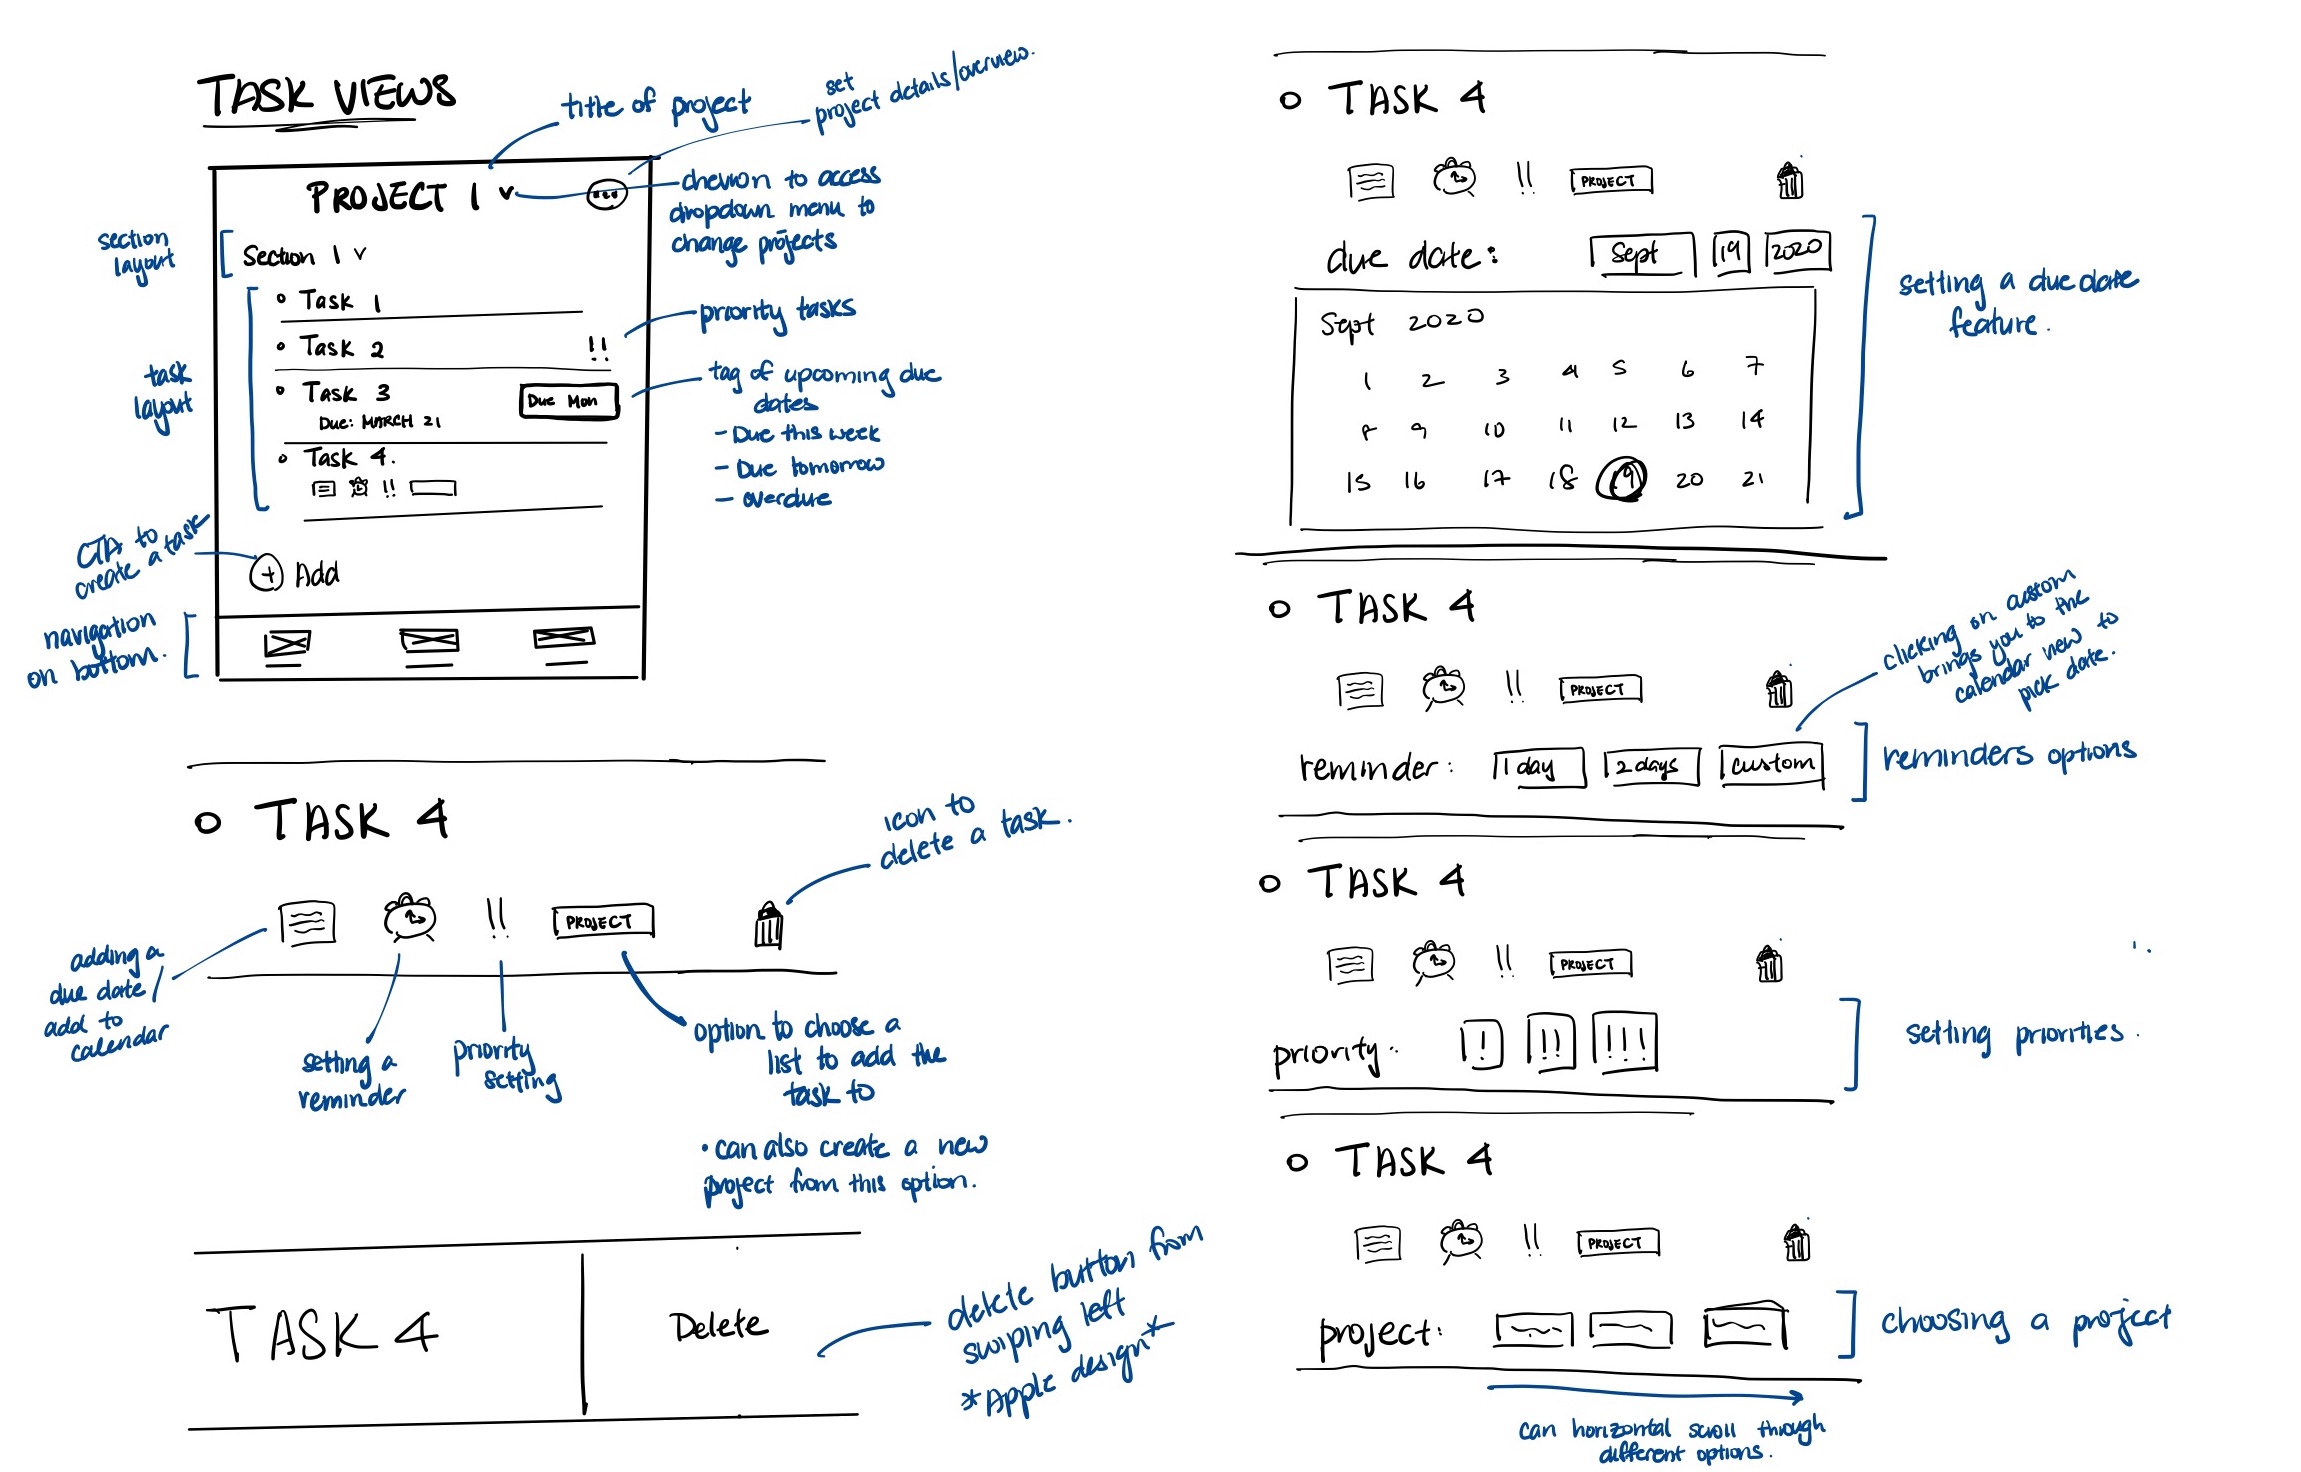 TASK VIEWS
title of project
set
project details/overview.
PROJECT 1 v
chevron to access
dropdown menu to
change projects
section
layout
Section 1 v
Task 1
Task 2 !!
priority tasks
task
layout
Task 3
Due: MARCH 21
Due Mon
tag of upcoming due
dates
- Due this week
- Due tomorrow
- overdue
Task 4.
!!
CTA to
create a task
+ Add
navigation
on bottom.
TASK 4
icon to
delete a task.
!! PROJECT
adding a
due date/
add to
calendar
setting a
reminder
priority
setting
option to choose a
list to add the
task to
• can also create a new
project from this option.
TASK 4
Delete
delete button from
swiping left
*Apple design*
TASK 4
!! PROJECT
due date: Sept 19 2020
Sept 2020
1 2 3 4 5 6 7
8 9 10 11 12 13 14
15 16 17 18 19 20 21
setting a due date
feature.
TASK 4
!! PROJECT
clicking on custom
brings you to the
calendar view to
pick date.
reminder: 1 day 2 days custom
reminders options
TASK 4
!! PROJECT
priority: ! !! !!!
setting priorities.
TASK 4
!! PROJECT
project:
choosing a project
can horizontal scroll through
different options.